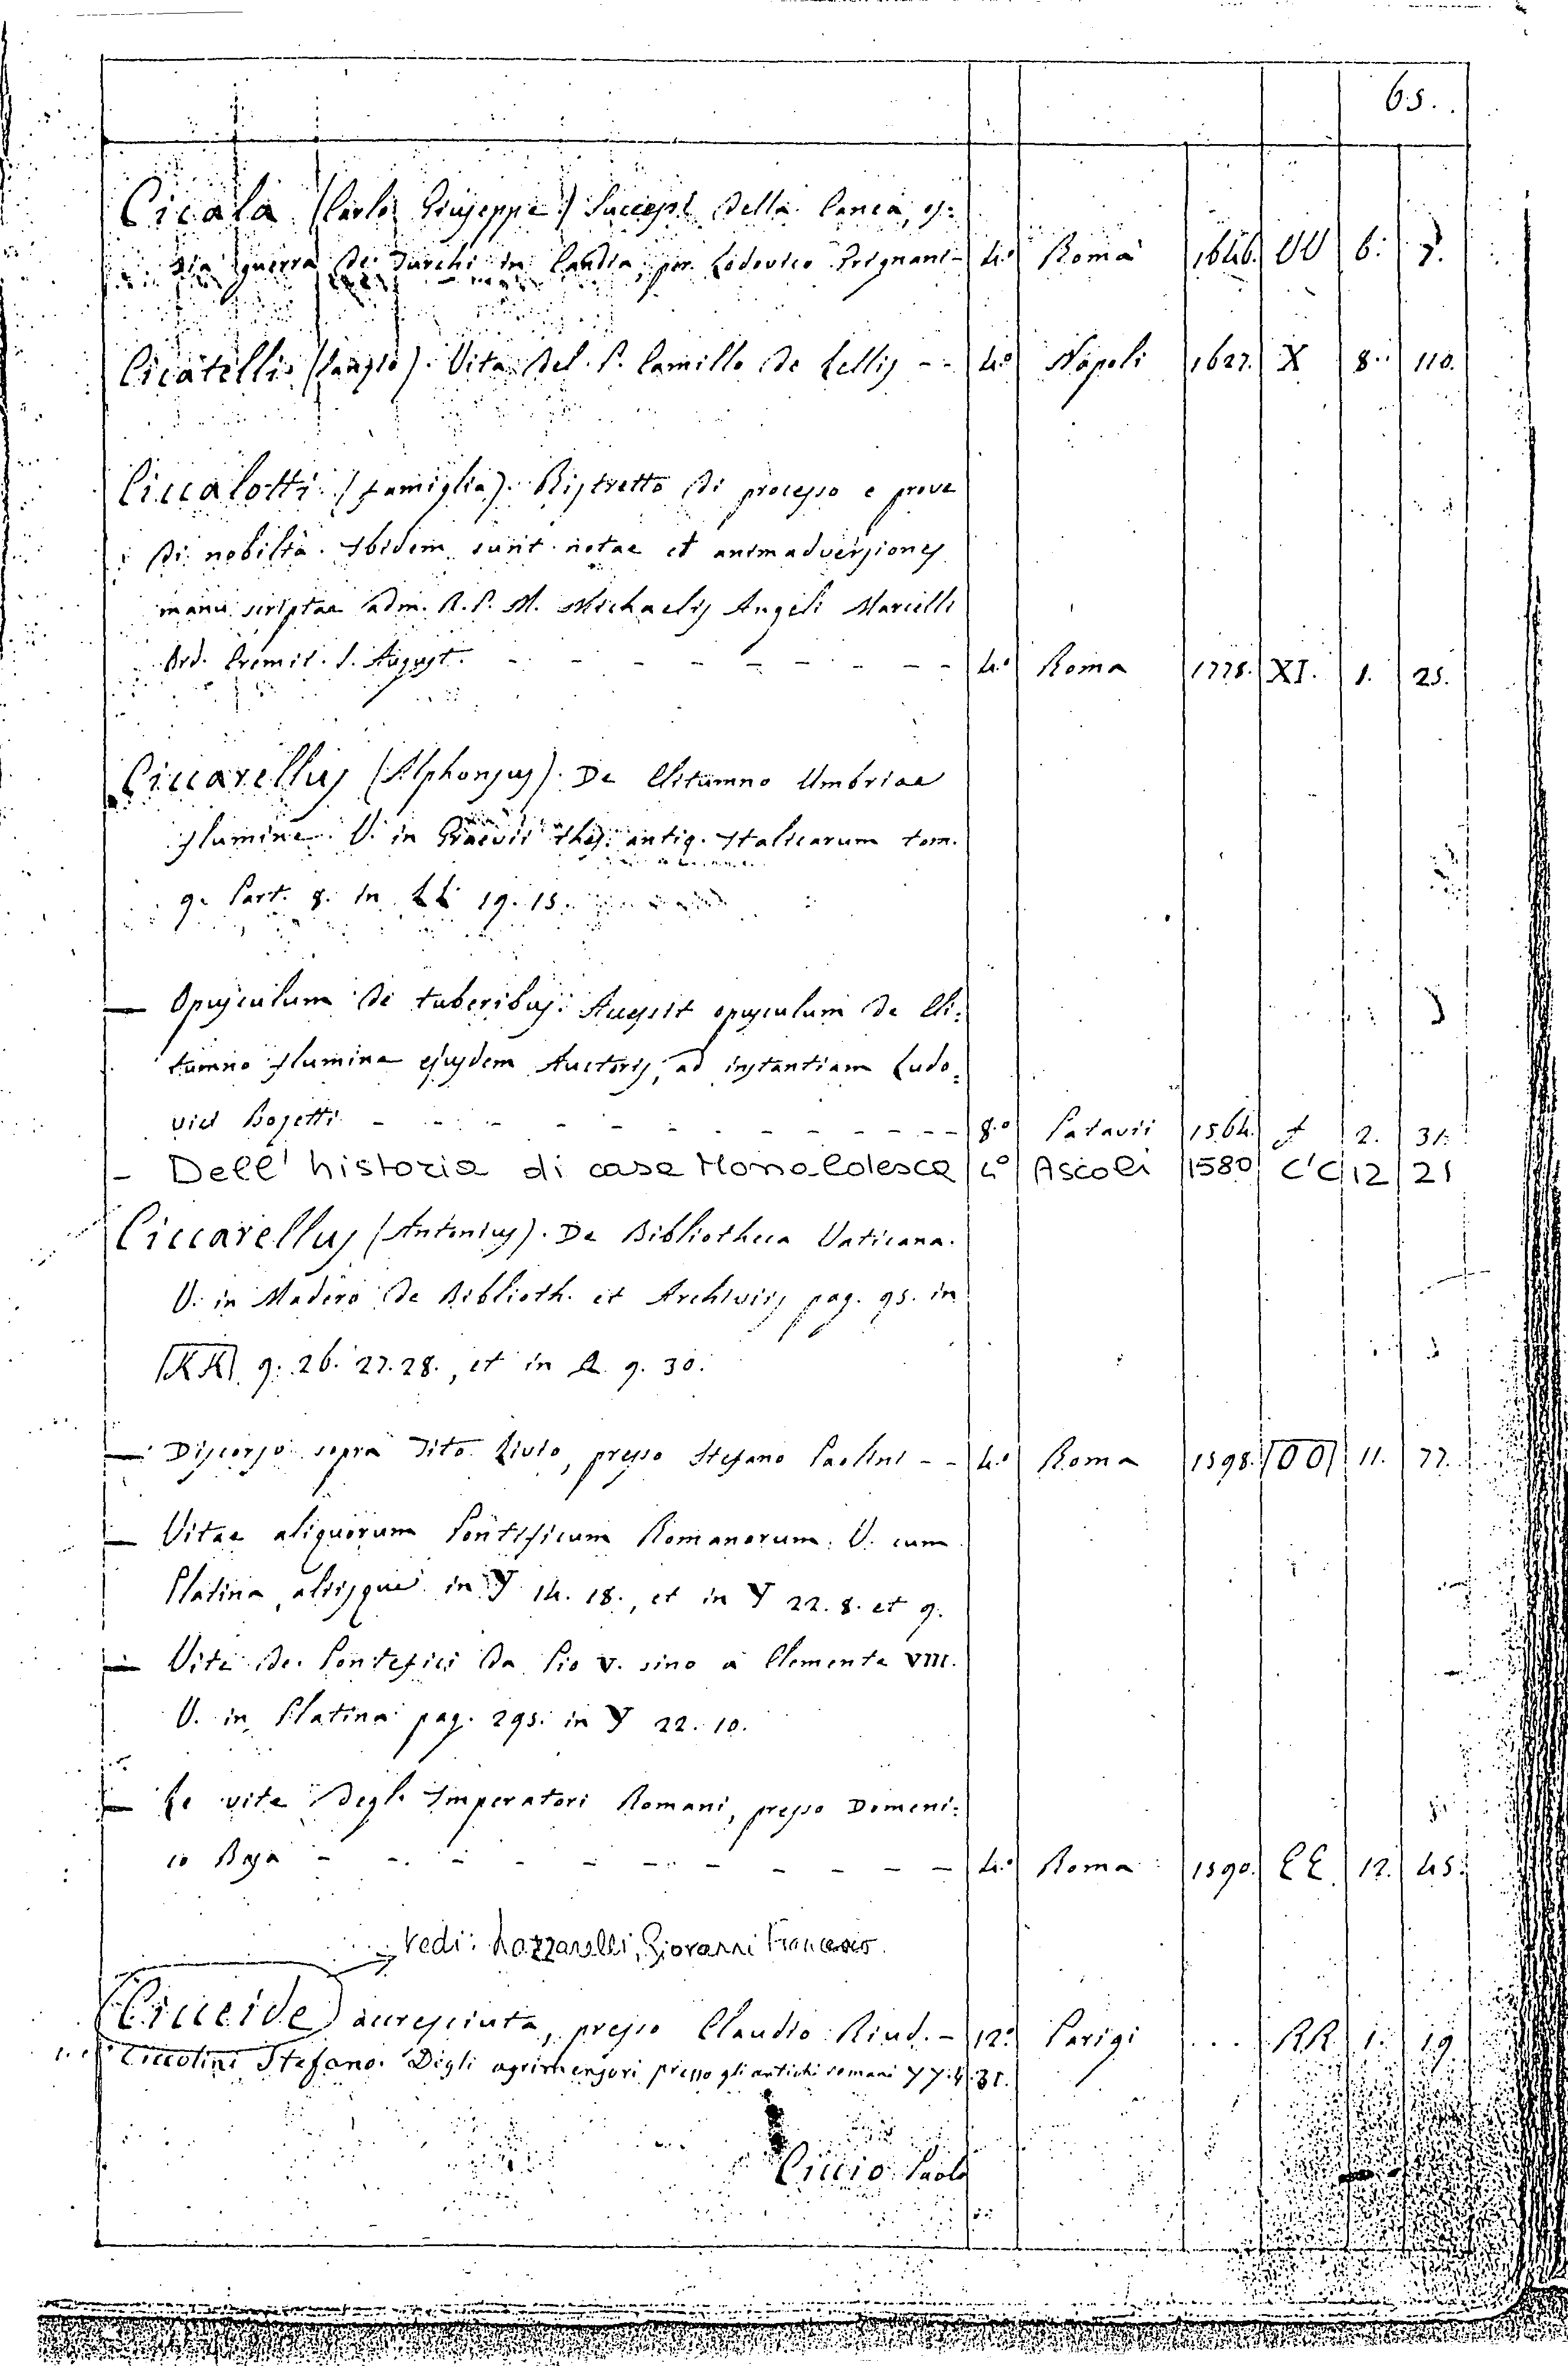 65.
Cicala (Carlo Giuseppe) Successi della Canea, os=
sia guerra de Turchi in Candia, per Lodovico Grignani - 4.° Roma 1646. VV 6. 7.
Cicatelli (Sanzio). Vita del P. Camillo de Lellis - - 4.° Napoli 1627. X 8. 110.
Ciccalotti (famiglia). Ristretto di processo e prove
di nobiltà. Ibidem sunt notae et animadversiones
manu scriptae adm. R. P. M. Michaelis Angeli Marcelli
Ord. Eremit. S. August. - - - - - - - - 4.° Roma 1778. XI. 1. 25.
Ciccarellus (Alphonsus). De Clitumno Umbriae
flumine. V. in Graevii thes. antiq. Italicarum tom.
9. Part. 8. in LL 19. 15.
— Opusculum de tuberibus. Accessit opusculum de Cli=
tumno flumine ejusdem Auctoris, ad instantiam Ludo=
vici Bozetti - - - - - - - - - - 8.° Patavii 1564. f 2. 31.
- Dell' historia di casa Monaldesca 4° Ascoli 1580 C'C 12 21
Ciccarellus (Antonius). De Bibliotheca Vaticana.
V. in Madero de Biblioth. et Archiviis pag. 95. in
KK 9. 26. 27. 28., et in R 9. 30.
— Discorso sopra Tito Livio, presso Stefano Paolini - - 4.° Roma 1598. OO 11. 77.
— Vitae aliquorum Pontificum Romanorum. V. cum
Platina, aliisque in Y 14. 18., et in Y 22. 8. et 9.
— Vite de Pontefici da Pio V. sino a Clemente VIII.
V. in Platina pag. 295. in Y 22. 10.
— Le vite degl' Imperatori Romani, presso Domeni=
co Basa - - - - - - - - - - - 4.° Roma 1590. EE 12. 45.
Vedi: Lazzarelli, Giovanni Francesco.
Cicceide accresciuta, presso Claudio Riud. - 12.° Parigi ... RR 1. 19
Ciccolini Stefano. Degli agrimensori presso gli antichi romani YY. 4. 31.
Ciccio Paolo